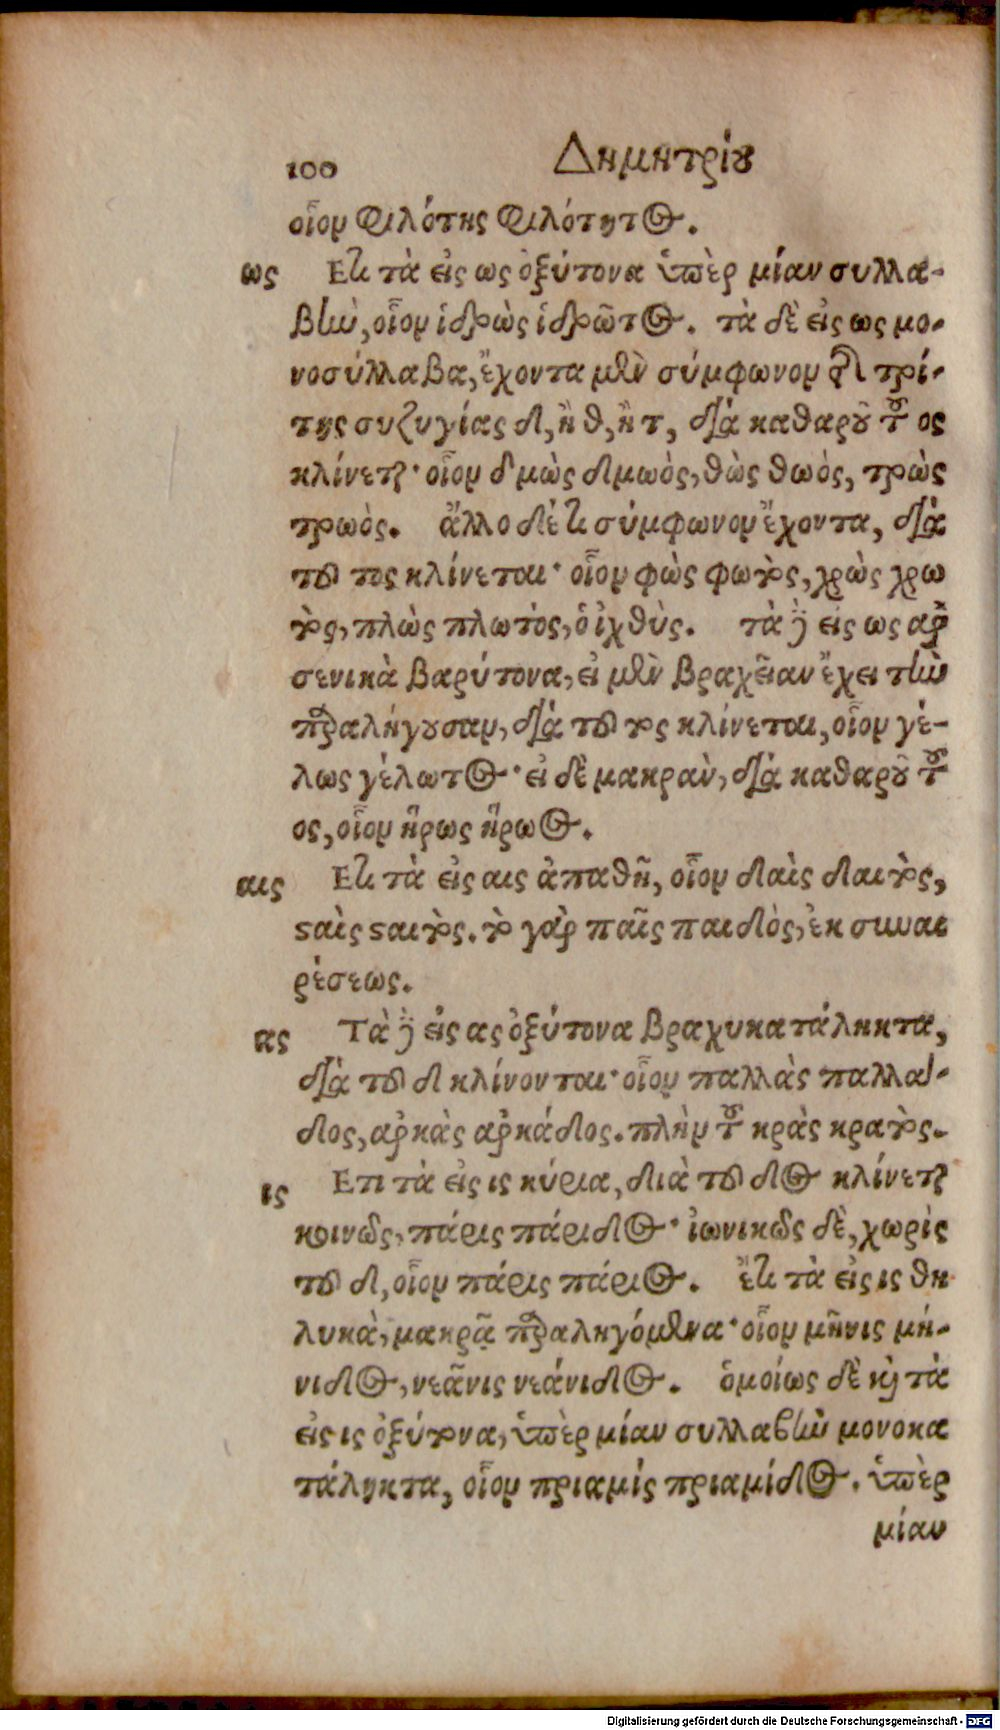 100 Δημητρίου
οἷον φιλότης φιλότητος.
ως Ετι τὰ εἰς ως ὀξύτονα ὑπὲρ μίαν συλλα-
βὴν, οἷον ἱδρὼς ἱδρῶτος. τὰ δὲ εἰς ως μο-
νοσύλλαβα, ἔχοντα μὲν σύμφωνον τῆς τρί-
της συζυγίας δ, ἢ θ, ἢ τ, διὰ καθαροῦ τοῦ ος
κλίνεται· οἷον δμὼς δμωὸς, θὼς θωὸς, τρὼς
τρωὸς. ἄλλο δέ τι σύμφωνον ἔχοντα, διὰ
τοῦ τος κλίνεται· οἷον φὼς φωτὸς, χρὼς χρω
τὸς, πλὼς πλωτὸς, ὁ ἰχθὺς. τὰ δὲ εἰς ως αρ
σενικὰ βαρύτονα, εἰ μὲν βραχεῖαν ἔχει τὴν
παραλήγουσαν, διὰ τοῦ τος κλίνεται, οἷον γέ-
λως γέλωτος· εἰ δὲ μακρὰν, διὰ καθαροῦ τοῦ
ος, οἷον ἥρως ἥρωος.
αις Ετι τὰ εἰς αις ἀπαθῆ, οἷον δαὶς δαιτὸς,
σαὶς σαιτὸς. τὸ γὰρ παῖς παιδὸς, ἐκ συναι
ρέσεως.
ας Τὰ δὲ εἰς ας ὀξύτονα βραχυκατάληκτα,
διὰ τοῦ δ κλίνονται· οἷον παλλὰς παλλά-
δος, αρκὰς αρκάδος. πλὴν τοῦ κρὰς κρατὸς.
ις Ετι τὰ εἰς ις κύρια, διὰ τοῦ δος κλίνεται
κοινῶς, πάρις πάριδος· ἰωνικῶς δὲ, χωρὶς
τοῦ δ, οἷον πάρις πάριος. ἔτι τὰ εἰς ις θη
λυκὰ, μακρᾷ παραληγόμενα· οἷον μῆνις μή-
νιδος, νεᾶνις νεάνιδος. ὁμοίως δὲ καὶ τὰ
εἰς ις ὀξύτονα, ὑπὲρ μίαν συλλαβὴν μονοκα
τάληκτα, οἷον πριαμίς πριαμίδος. ὑπὲρ
μίαν
Digitalisierung gefördert durch die Deutsche Forschungsgemeinschaft - DFG